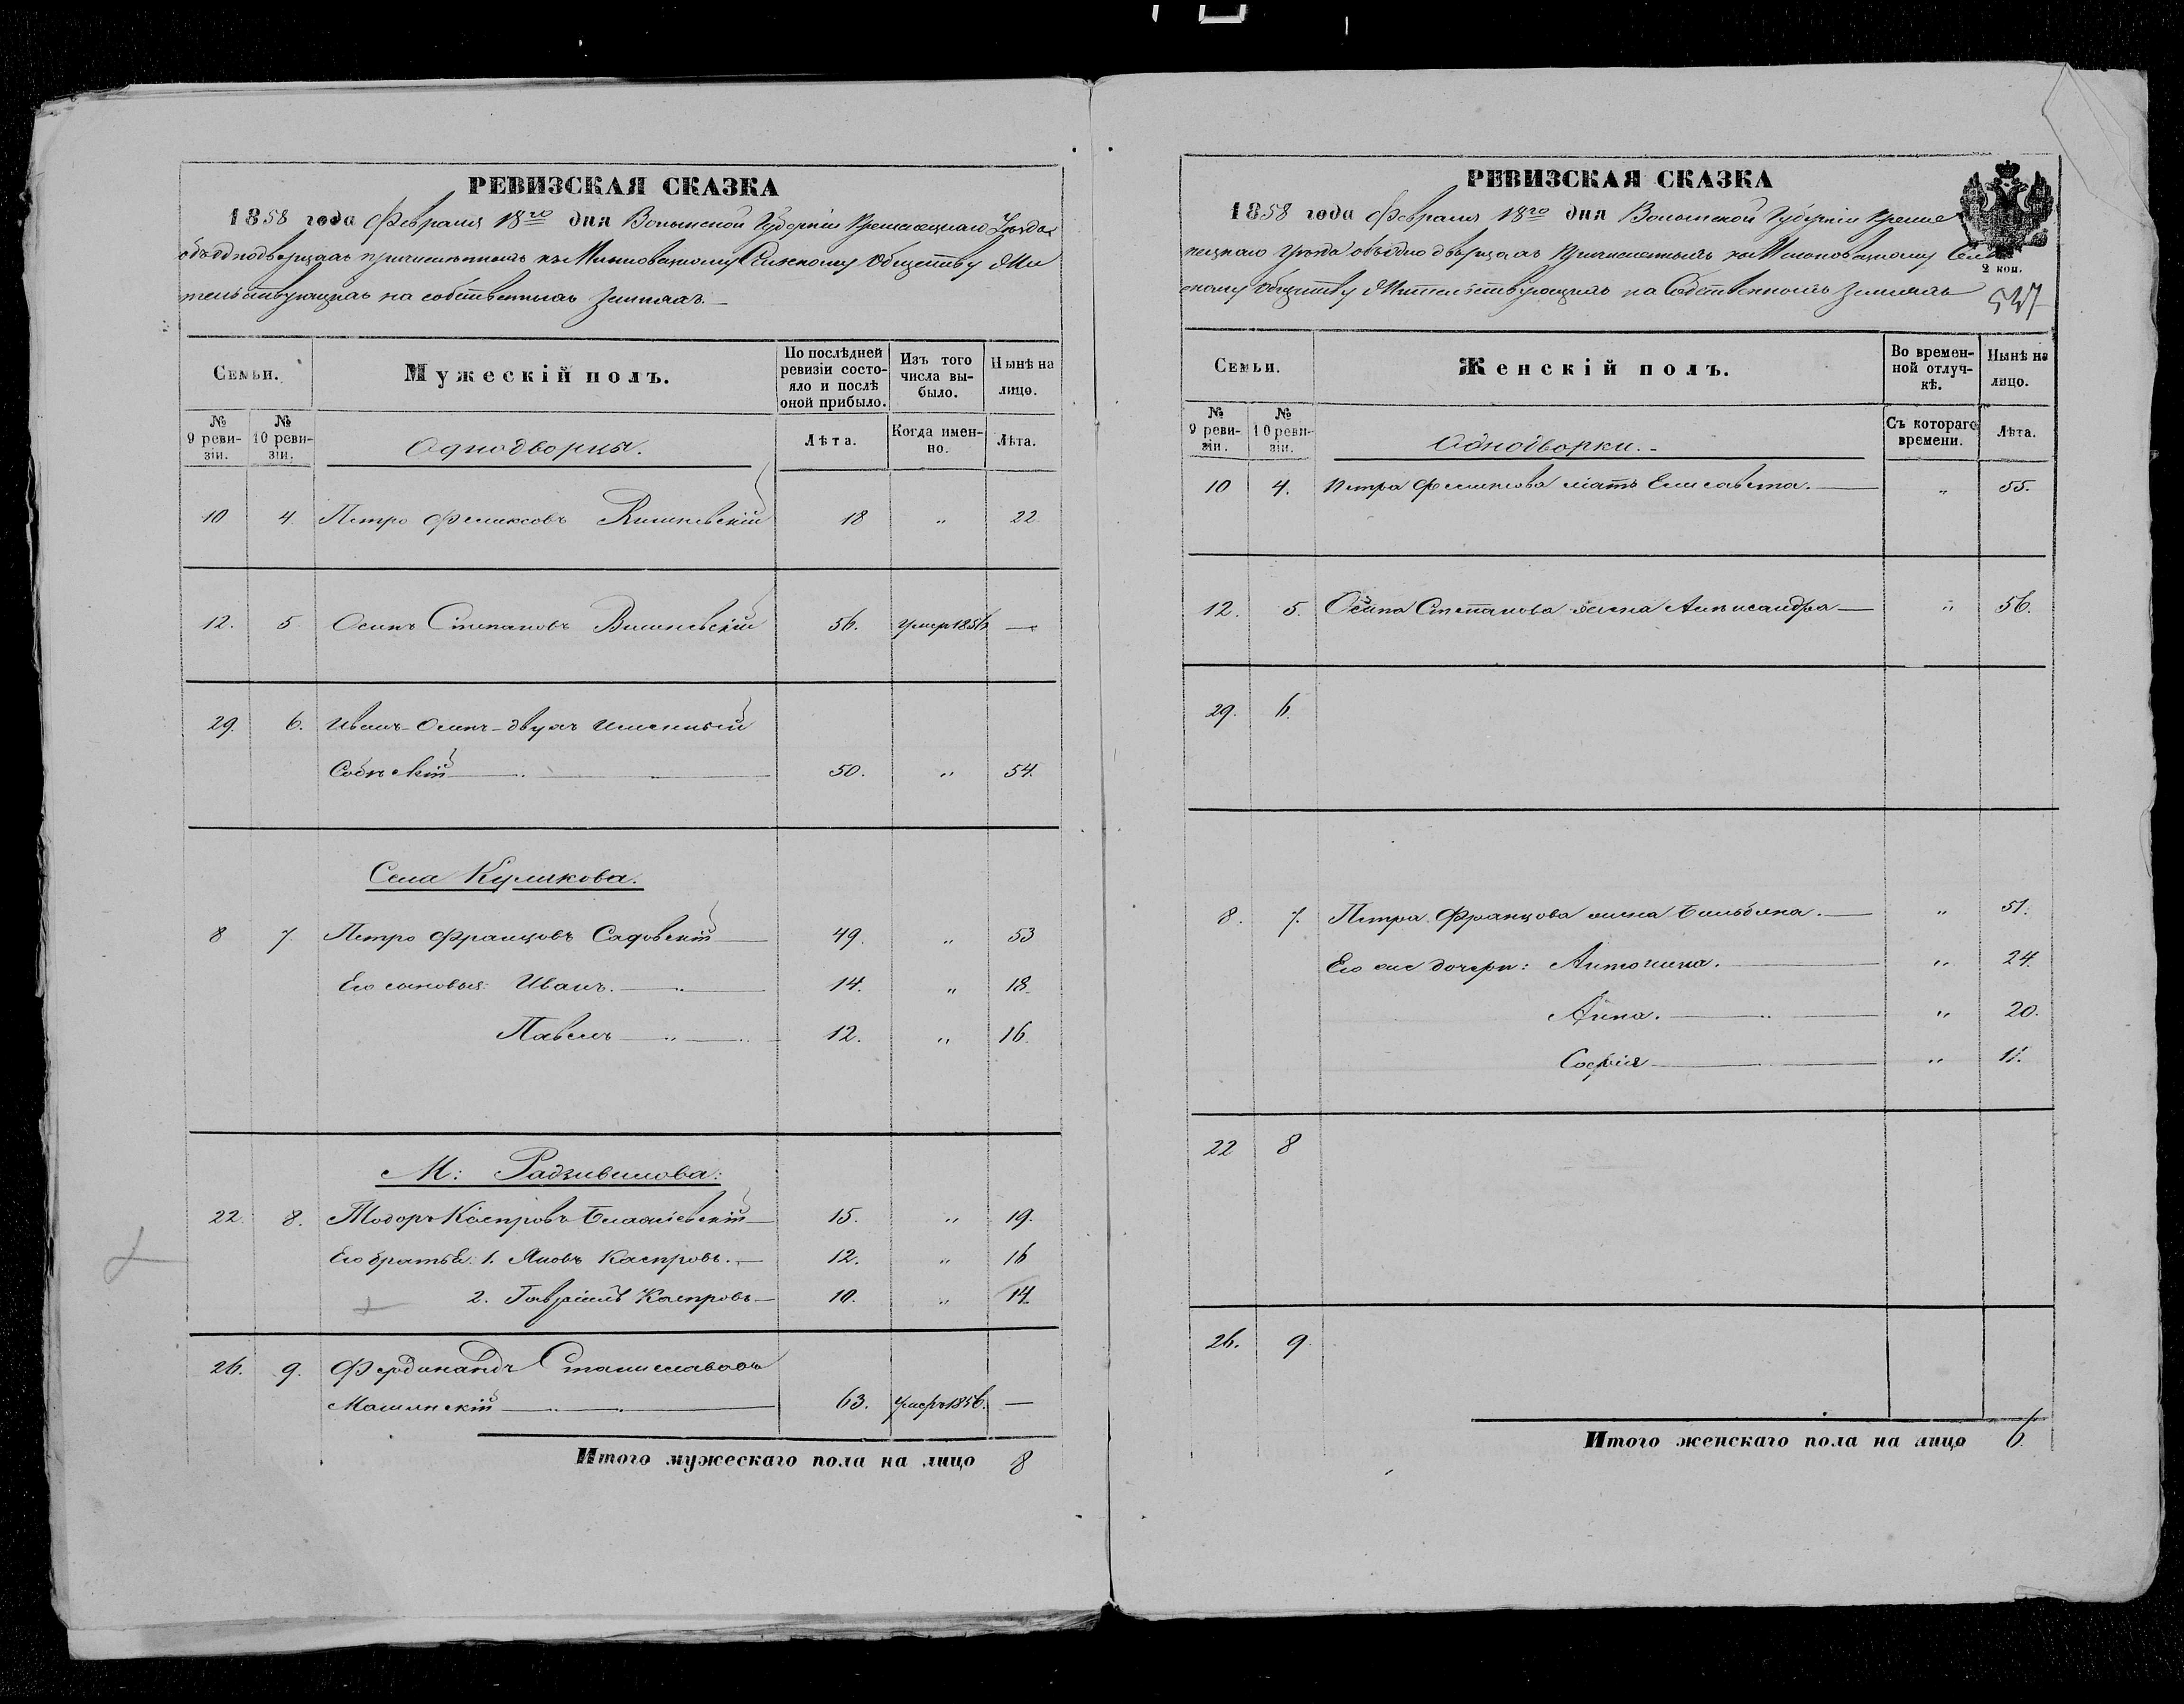 РЕВИЗСКАЯ СКАЗКА
1858 года Февраля 18го дня Волынской Губерніи Кременецкаго Уѣзда
объ однодворцахъ причисленныхъ къ Сельскому Обществу Жи
тельствующихъ на собственныхъ земляхъ
Семьи.
Мужескій полъ.
По послѣдней ревизіи состояло и послѣ оной прибыло.
Изъ того числа выбыло.
Нынѣ на лицо.
№ 9 ревизіи.
№ 10 ревизіи.
Однодворцы.
Лѣта.
Когда именно.
Лѣта.
10 4. Петро Феликсовъ Вишневскій 18 " 22
12. 5 Осипъ Степановъ Вишневскій 56. умеръ 1856 —
29. 6. Иванъ-Осипъ-двухъ Именный
Собѣскій 50. " 54.
Села Куликова.
8 7. Петро Францовъ Садовскій 49. " 53
Его сыновья: Иванъ. 14. " 18.
Павелъ 12. " 16.
М: Радзивилова:
22 8. Тодоръ Каспровъ 15. " 19.
Его братья: 1. Яковъ Каспровъ. 12. " 16
2. Гавріилъ Каспровъ 10. " 14.
26. 9. Фердинандъ Станиславовъ
63. умеръ 1856. —
Итого мужескаго пола на лицо 8
РЕВИЗСКАЯ СКАЗКА
1858 года Февраля 18го дня Волынской Губерніи Креме
нецкаго Уѣзда объ однодворцахъ Причисленныхъ къ Сель
2 коп.
скому Обществу Жительствующихъ на Собственныхъ Земляхъ
547
Семьи.
Женскій полъ.
Во временной отлучкѣ.
Нынѣ на лицо.
№ 9 ревизіи.
№ 10 ревизіи.
Однодворки.
Съ котораго времени.
Лѣта.
10 4. Петра Феликсова мать Елисавета. " 55.
12. 5. Осипа Степанова жена Александра " 56.
29. 6.
8. 7. Петра Францова жена " 51.
Его же дочери: Антонина. " 24.
Анна. " 20.
Софія " 11.
22 8
26. 9.
Итого женскаго пола на лицо 6.